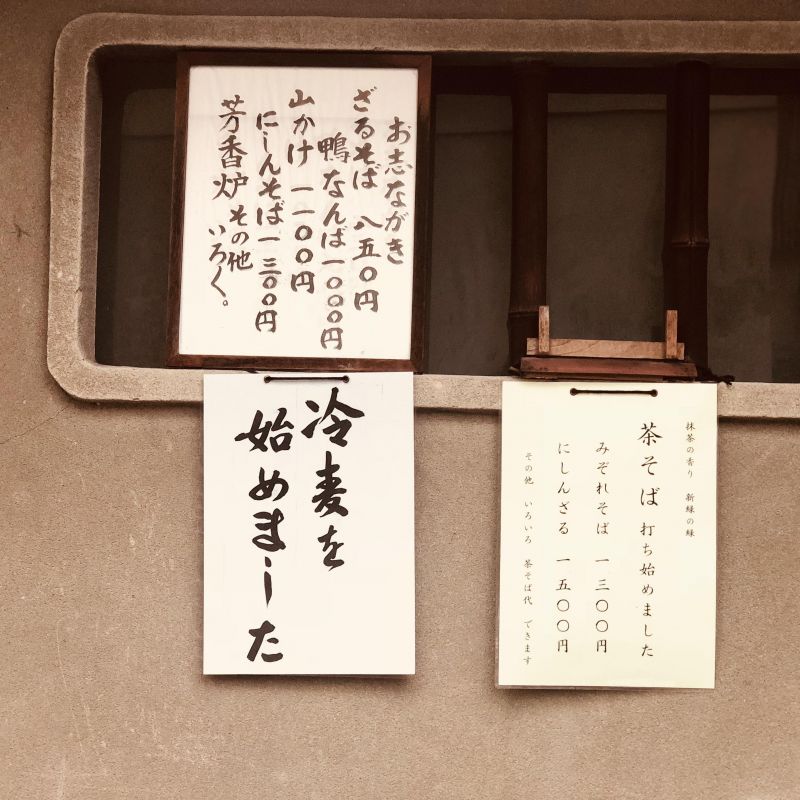 お志ながき
ざるそば 八五〇円
鴨なんば 一〇〇〇円
山かけ 一一〇〇円
にしんそば 一三〇〇円
芳香炉 その他
いろ〱。
冷麦を
始めました
抹茶の香り 新緑の緑
茶そば 打ち始めました
みぞれそば 一三〇〇円
にしんざる 一五〇〇円
その他 いろいろ 茶そば代 できます